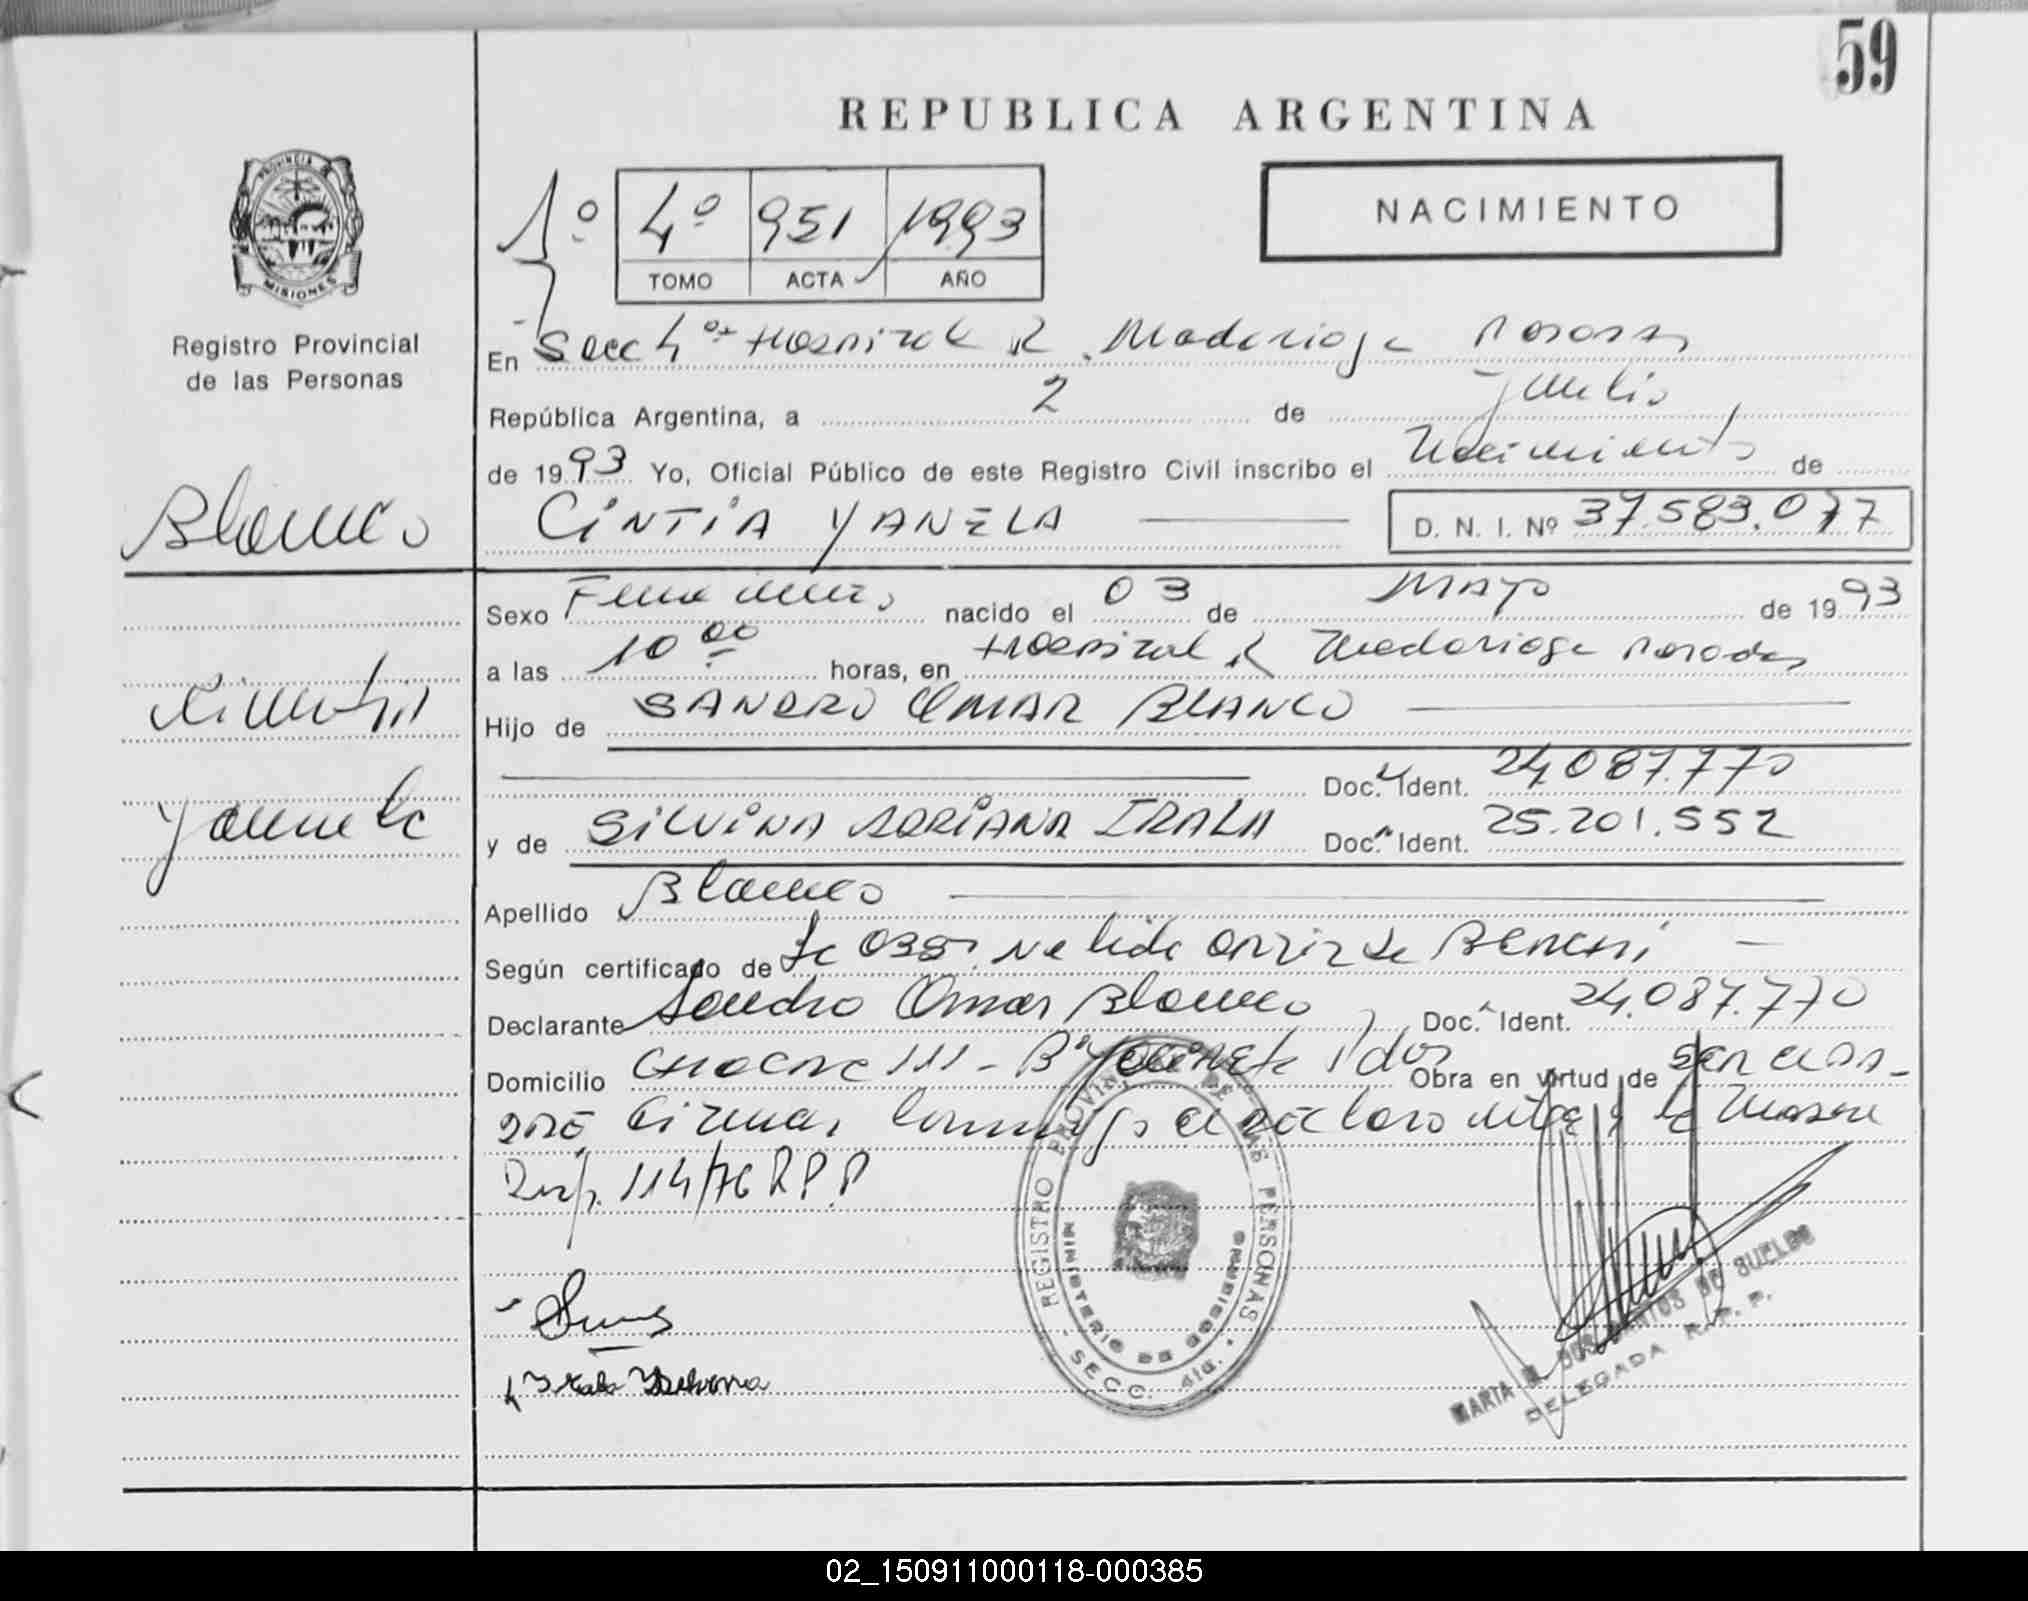 59
REPUBLICA ARGENTINA
PROVINCIA DE
MISIONES
Registro Provincial
de las Personas
NACIMIENTO
1º 4º 951 1993
TOMO ACTA AÑO
En Secc 4ª Hospital R. Madariaga Posadas
República Argentina, a 2 de Julio
de 1993 Yo, Oficial Público de este Registro Civil inscribo el Nacimiento de
Blanco
CINTIA YANELA D. N. I. Nº 37.583.077
Sexo Femenino nacido el 03 de MAYO de 1993
a las 10 00 horas, en Hospital R Madariaga Posadas
Cintia
Hijo de SANDRO OMAR BLANCO
Doc. Ident. 24.087.770
Yanela
y de SILVINA ADRIANA IRALA Doc. Ident. 25.201.552
Apellido Blanco
Según certificado de
Declarante Sandro Omar Blanco Doc. Ident. 24.087.770
Domicilio 111 - Bº Obra en virtud de ser
firman y la Madre
Disp. 114/76 R.P.P
REGISTRO PROVINCIAL DE LAS PERSONAS
MINISTERIO DE GOBIERNO
SECC. 4ta.
Irala Silvina
MARIA DOS SANTOS DE SUELDO
DELEGADA R. P. P.
02_150911000118-000385